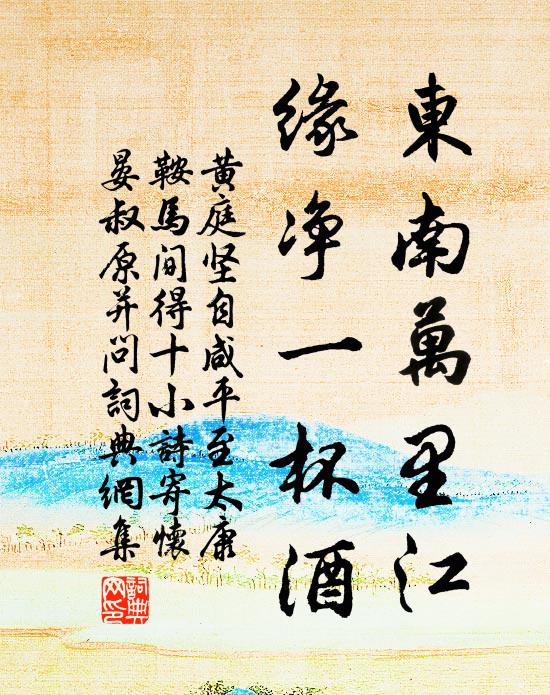 東南萬里江
緣净一杯酒
黄庭坚自咸平至太康
鞍馬间得十小詩寄懷
晏叔原并问詞典網集